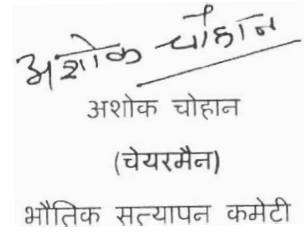 अशोक चौहान
अशोक चोहान
(चेयरमैन)
भौतिक सत्यापन कमेटी